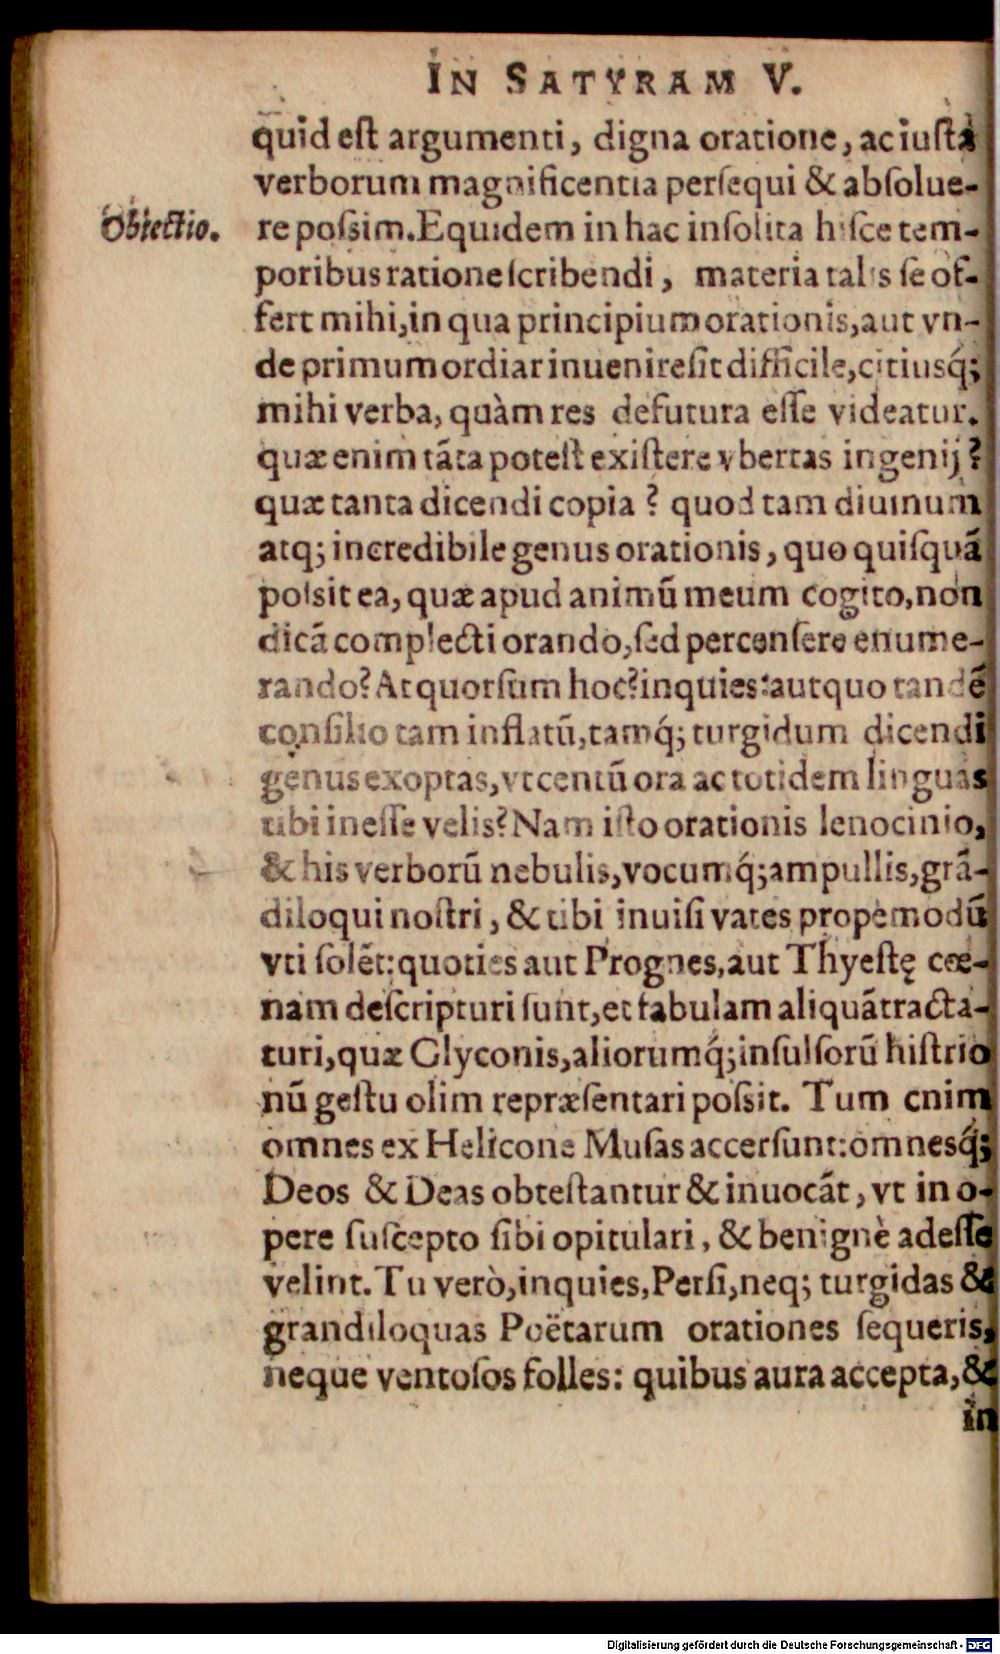 IN SATYRAM V.
quid est argumenti, digna oratione, ac iusta
verborum magnificentia persequi & absolue-
Obiectio.
re possim. Equidem in hac insolita hisce tem-
poribus ratione scribendi, materia talis se of-
fert mihi, in qua principium orationis, aut vn-
de primum ordiar inuenire sit difficile, citiusq́;
mihi verba, quàm res defutura esse videatur.
quæ enim tãta potest existere vbertas ingenij?
quæ tanta dicendi copia? quod tam diuinum
atq; incredibile genus orationis, quo quisquã
possit ea, quæ apud animũ meum cogito, non
dicã complecti orando, sed percensere enume-
rando? At quorsum hoc? inquies: aut quo tandẽ
consilio tam inflatũ, tamq́; turgidum dicendi
genus exoptas, vt centũ ora ac totidem linguas
tibi inesse velis? Nam isto orationis lenocinio,
& his verborũ nebulis, vocumq́; ampullis, grã-
diloqui nostri, & tibi inuisi vates propemodũ
vti solẽt: quoties aut Prognes, aut Thyestę cœ-
nam descripturi sunt, et fabulam aliquã tracta-
turi, quæ Glyconis, aliorumq́; insulsorũ histrio
nũ gestu olim repræsentari possit. Tum enim
omnes ex Helicone Musas accersunt: omnesq́;
Deos & Deas obtestantur & inuocãt, vt in o-
pere suscepto sibi opitulari, & benignè adesse
velint. Tu verò, inquies, Persi, neq; turgidas &
grandiloquas Poëtarum orationes sequeris,
neque ventosos folles: quibus aura accepta, &
in
Digitalisierung gefördert durch die Deutsche Forschungsgemeinschaft - DFG